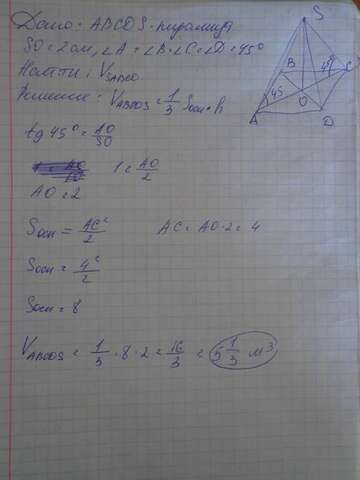 Дано: ABCDS - пирамида
SO = 2 см, ∠A = ∠B = ∠C = ∠D = 45°
Найти: V
Решение: V_ABCDS = 1/3 Sосн · h
tg 45° = AO/SO
1 = AO/2
AO = 2
Sосн = AC²/2 AC = AO · 2 = 4
Sосн = 4²/2
Sосн = 8
V_ABCDS = 1/3 · 8 · 2 = 16/3 = 5 1/3 м³
S
B
45
C
45
O
A
D